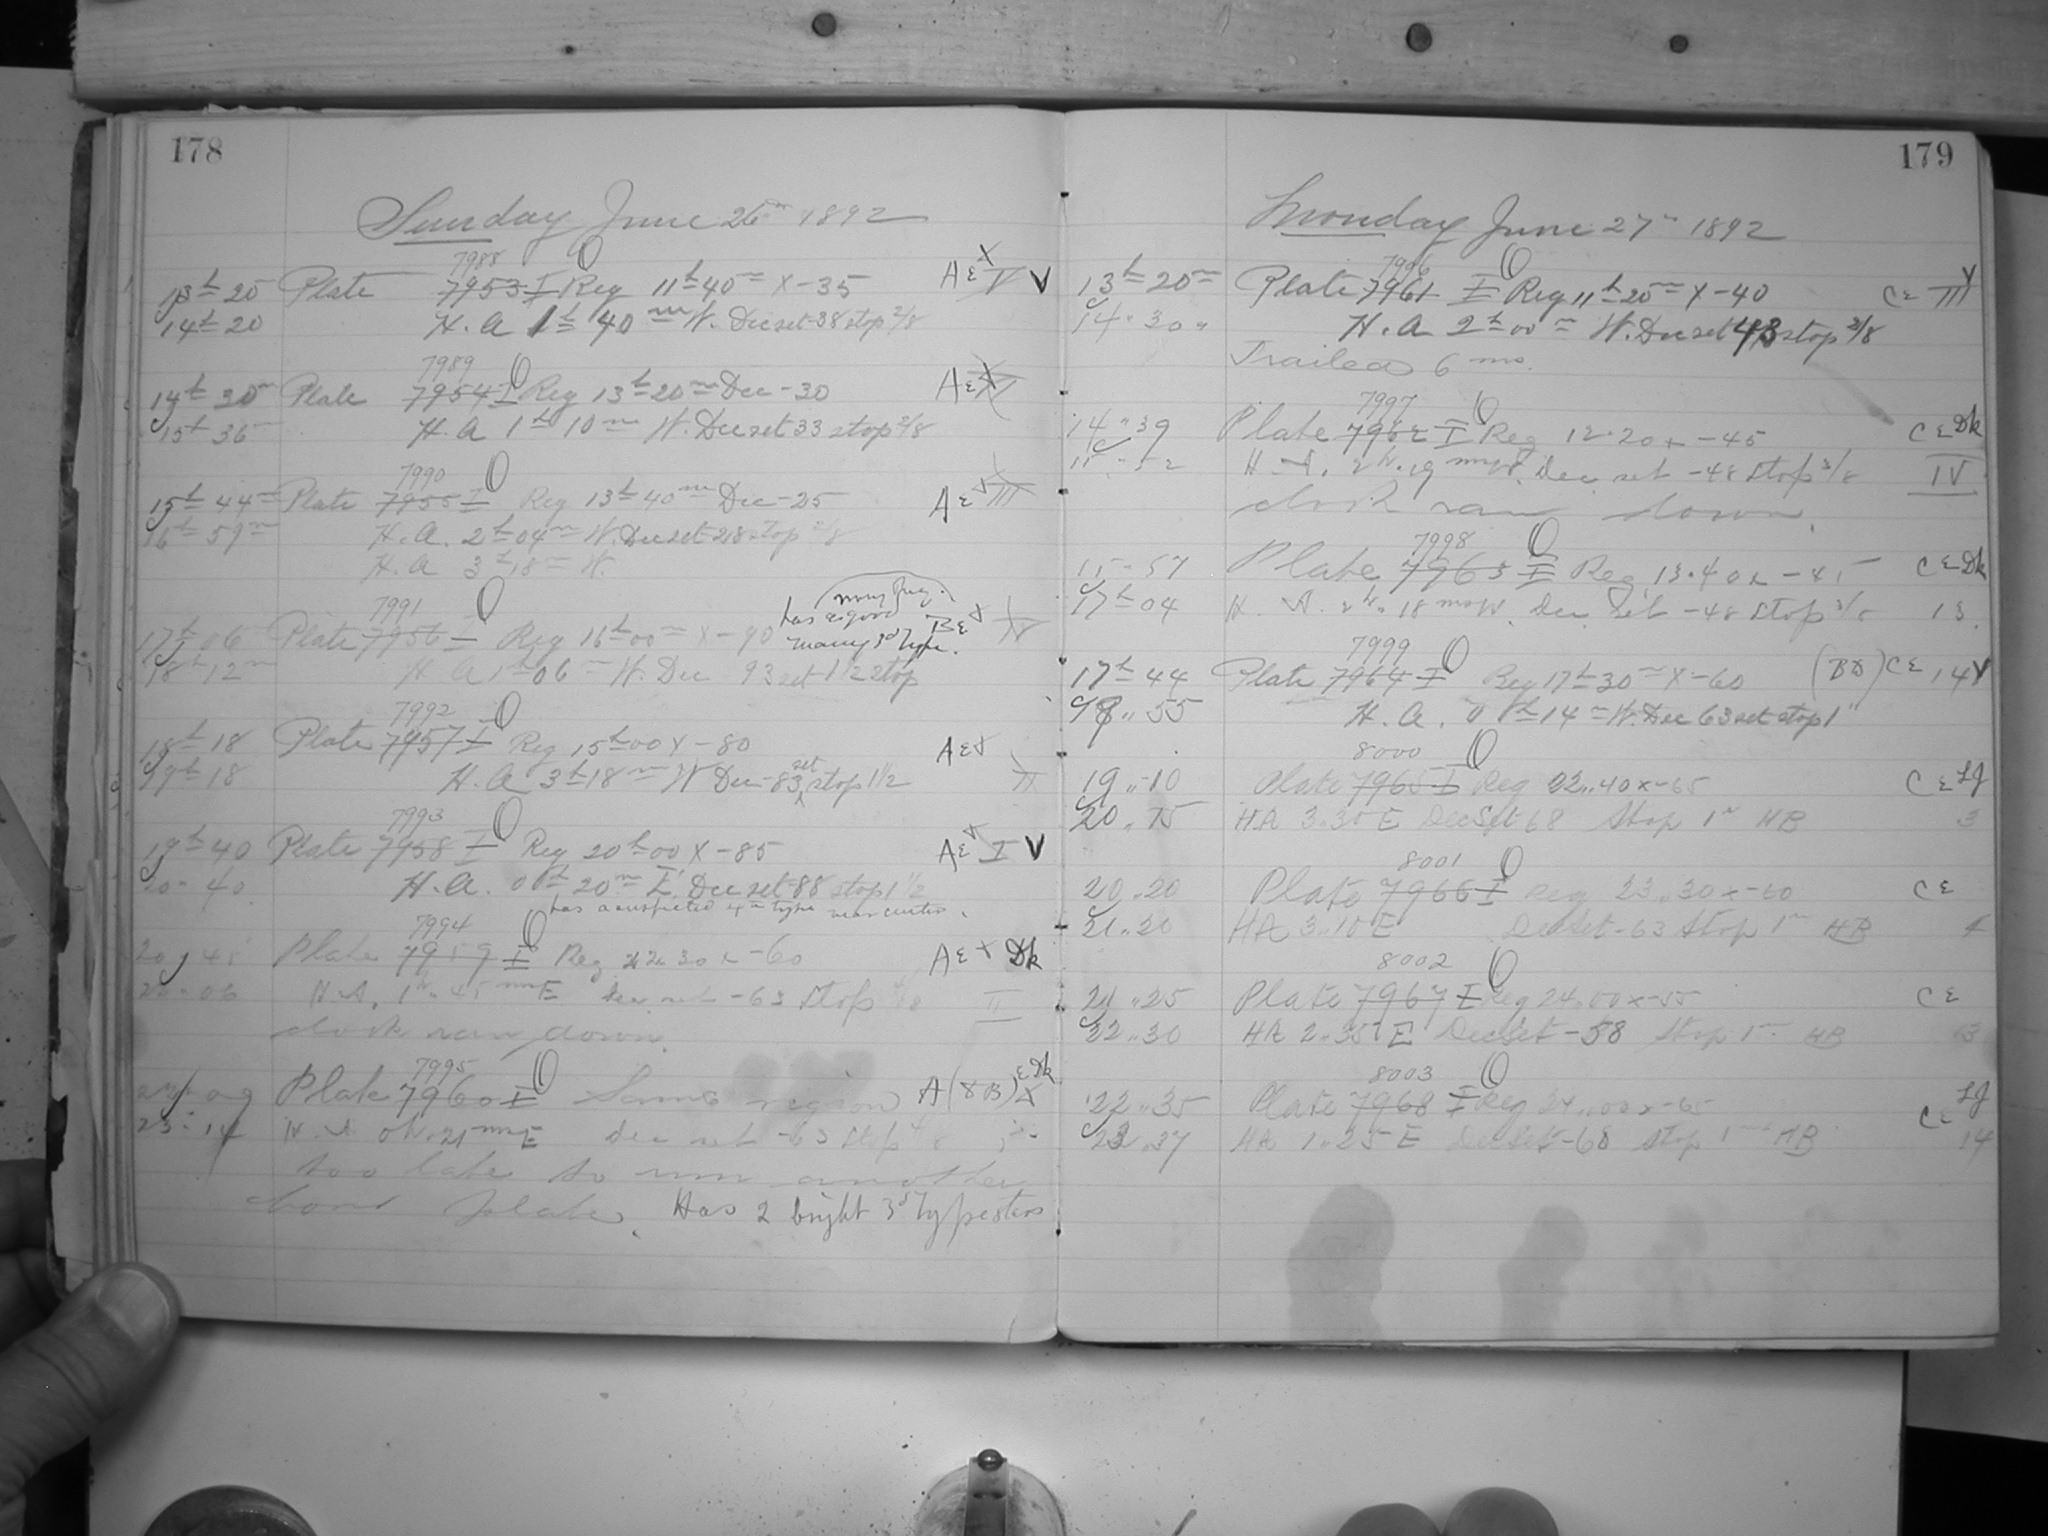 178
Sunday June 26th 1892
7988
13h 20 Plate 7953 I Reg 11h 40m X -35 A ε X V V
14h 20 H.A 1h 40m W. Dec set -38 stop 2/8
7989
14h 30m Plate 7954 I Reg 13h 20m Dec -30 A ε X
15h 36m H.A 1h 10m W. Dec set 33 stop 2/8
7990
15h 44m Plate 7955 I Reg 13h 40m Dec -25 A ε X III
16h 59m H.A. 2h 04m W. Dec set -28 stop 2/8
H.A 3h 18m W.
7991
has a good many
many 3d type.
17h 06 Plate 7956 I Reg 16h 00m X -90 B ε X
18h 12m H.A 1h 06m W. Dec 93 set 1 1/2 stop
7992
18h 18 Plate 7957 I Reg 15h 00 X -80 A ε X
19h 18 H.A 3h 18m W Dec -83 set stop 1 1/2 II
7993
19h 40 Plate 7958 I Reg 20h 00 X -85 A ε X I V
20 " 40 H.A. 00h 20m E. Dec set -88 stop 1 1/2
has a suspected 4th type near center.
7994
20 " 45 Plate 7959 I Reg 22 " 30 x -60 A ε X Dk
22 " 06 H.A. 1h " 45 mns E Dec set -63 stop II
clock ran down.
7995
22 " 09 Plate 7960 I Same region A (& B) ε Dk X
23 " 14 H.A 0h " 21 mns E dec set -63 stop
too late to run another
hour plate. Has 2 bright 3d type stars
179
Monday June 27th 1892
7996
13h 20m Plate 7961 I Reg 11h 20m X -40 C ε III V
14 " 30 " H.A 2h 00m W. Dec set 43 stop 2/8
Trailed 6 ms.
7997
14 " 39 Plate 7962 I Reg 12 " 20 x -45 C ε Dk
15 " 52 H.A. 2h " 19 mns W. Dec set -48 stop 2/8 IV
clock ran down.
7998
15 " 57 Plate 7963 I Reg. 13 " 40 x -45 C ε Dk
17h 04 H.A. 2h " 18 mns W. Dec set -48 stop 2/8 13.
7999
17h 44 Plate 7964 I Reg 17h 30m X -60 (BD) C ε 14 V
18 " 55 H.A. 0h 14m W. Dec 63 set stop 1"
8000
19 " 10 Plate 7965 I Reg 22 " 40 x -65 C ε LJ
20 " 15 HA 3 " 30 E Dec Set 68 Stop 1" HB 3
8001
20 " 20 Plate 7966 I Reg 23 " 30 x -60 C ε
21 " 20 HA 3 " 10 E Dec Set -63 Stop 1" HB 4
8002
21 " 25 Plate 7967 I Reg 24 " 00 x -55 C ε
22 " 30 HA 2 " 35 E Dec Set -58 Stop 1" HB 3
8003
22 " 35 Plate 7968 I Reg 24 " 00 x -65 C ε LJ
23 " 37 HA 1 " 25 E Dec Set -68 Stop 1" HB 14